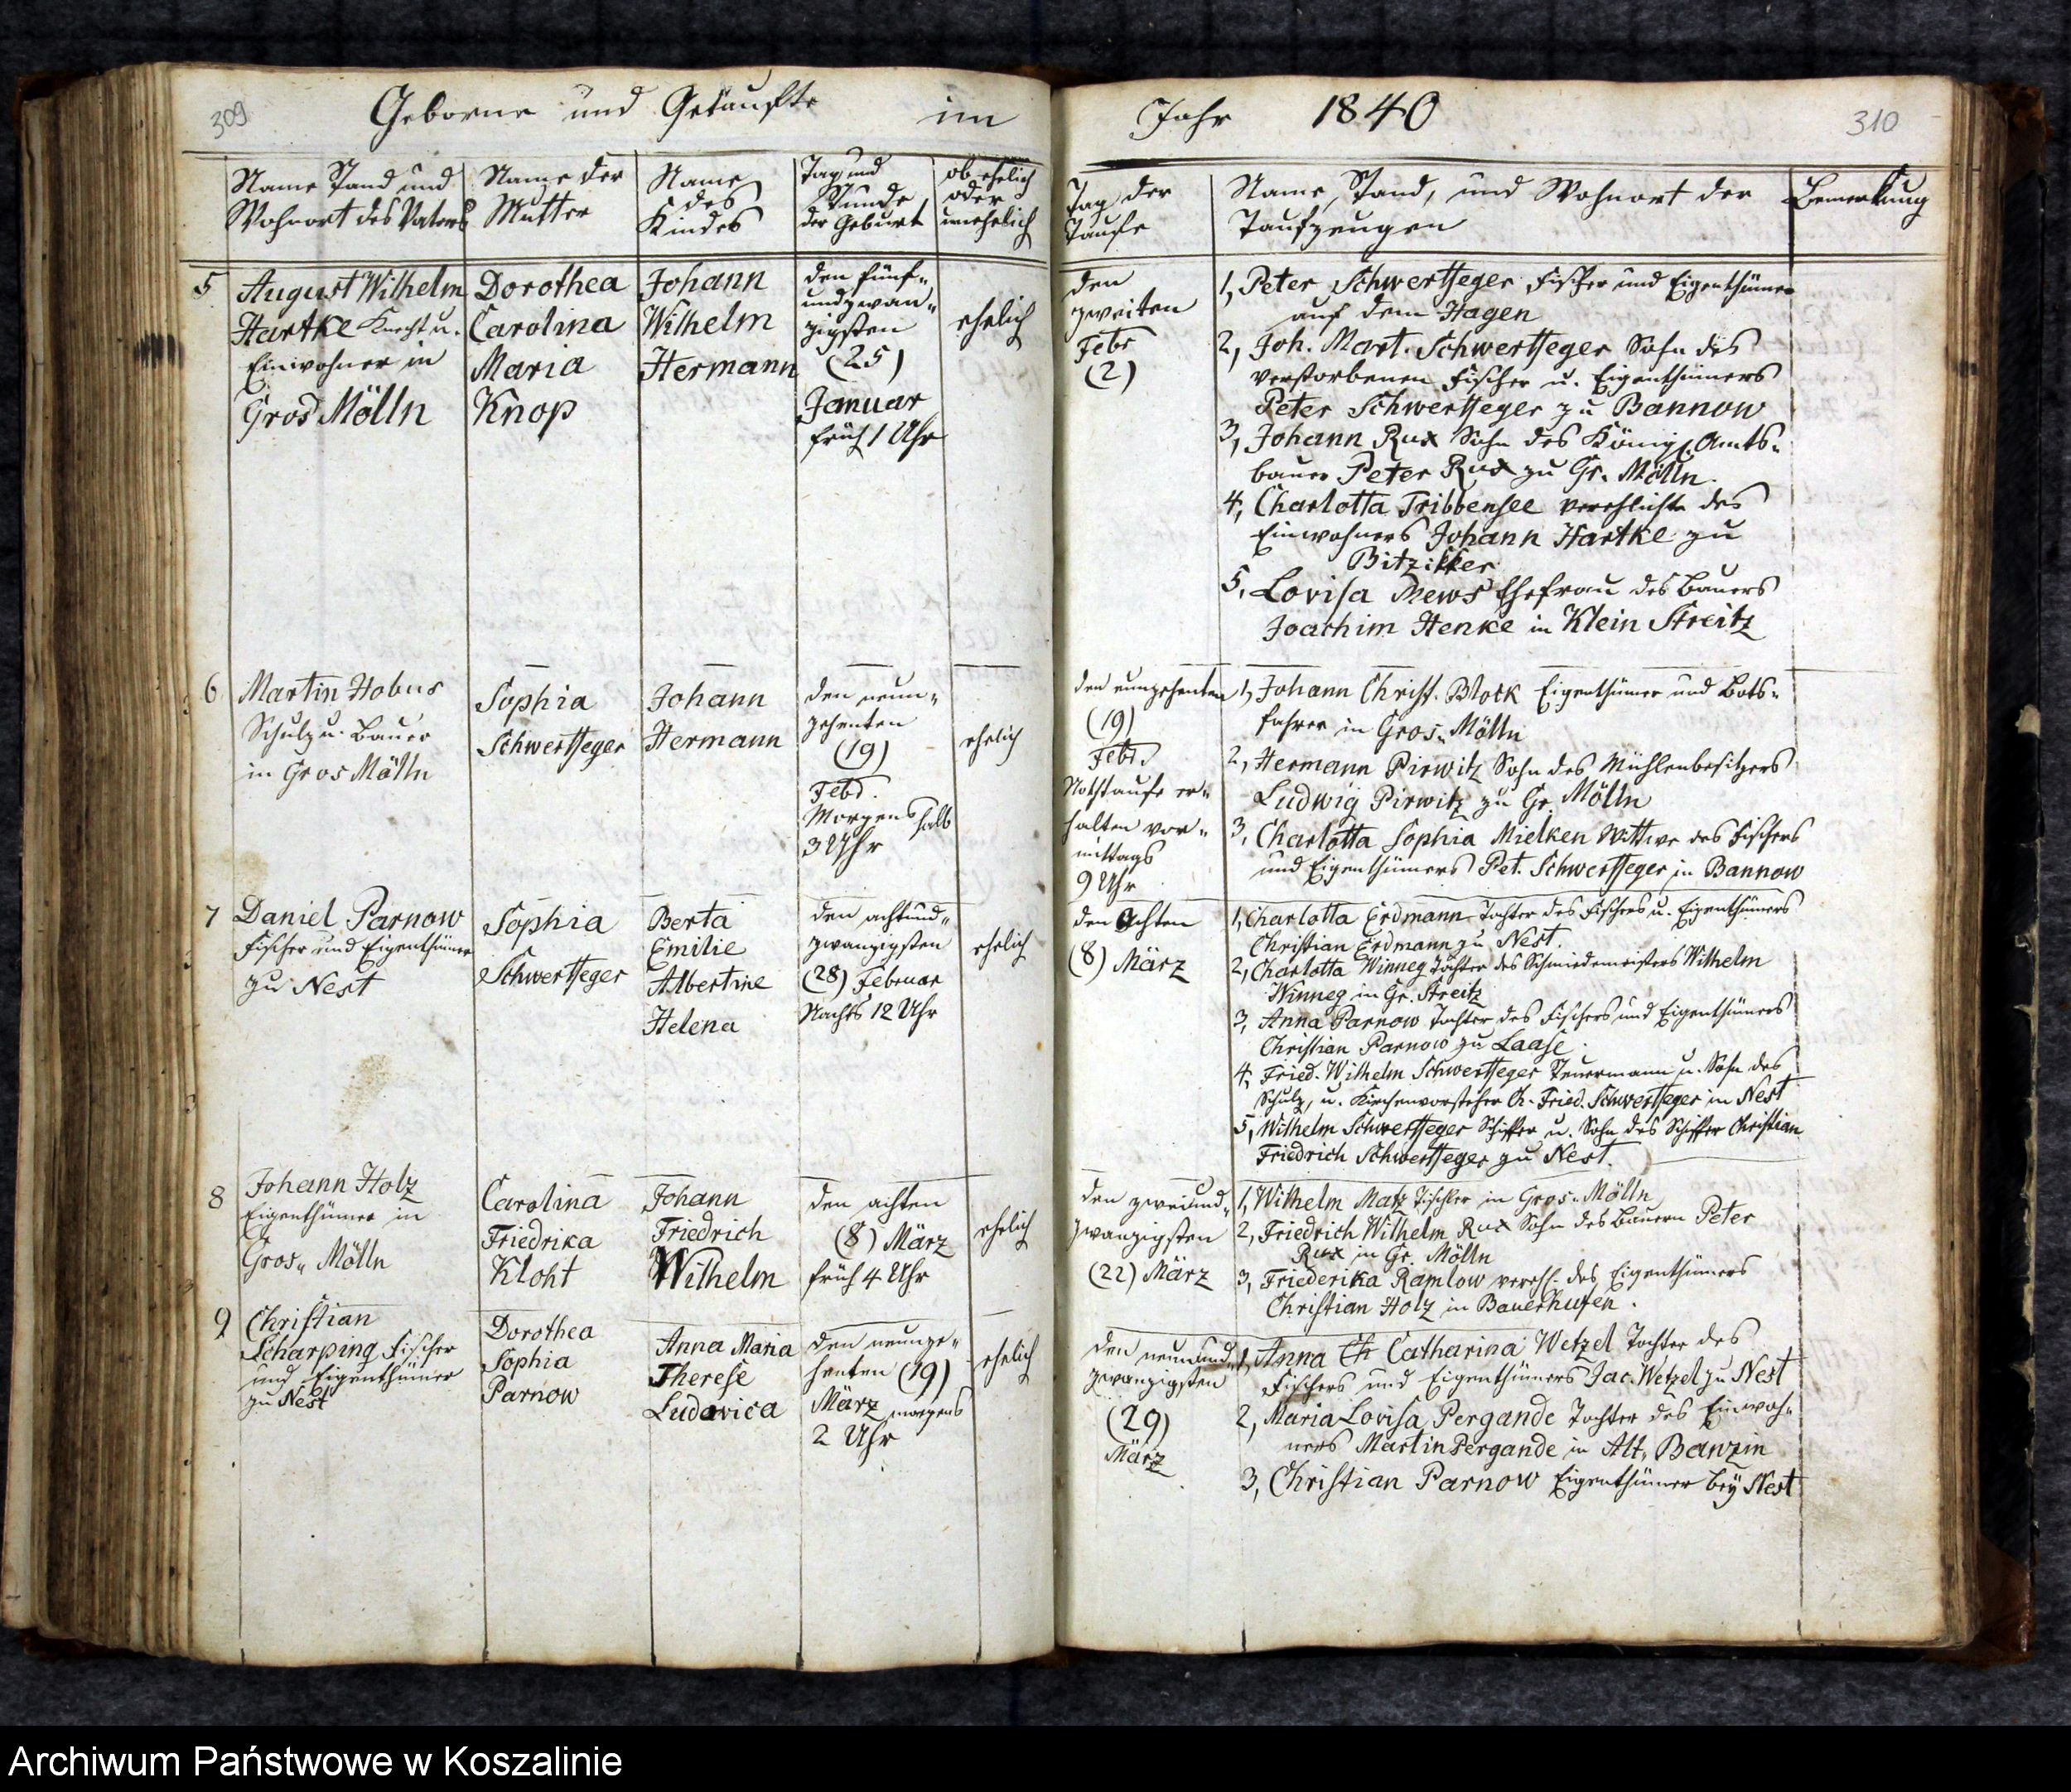 309
Geborne und Getaufte im
Name Stand und
Wohnort des Vaters
Name der
Mutter
Name
des
Kindes
Tag und
Stunde
der Geburt
ob ehelich
oder
unehelich
5
August Wilhelm
Hartke Knecht u.
Einwohner in
Gros Mölln
Dorothea
Carolina
Maria
Knop
Johann
Wilhelm
Hermann
den fünf-
undzwan-
zigsten
(25)
Januar
früh 1 Uhr
ehelich
6
Martin Hobus
Schulz u. Bauer
in Gros Mölln
Sophia
Schwertfeger
Johann
Hermann
den neun-
zehenten
(19)
Febr.
Morgens halb
3 Uhr
ehelich
7
Daniel Parnow
Fischer und Eigenthümer
zu Nest
Sophia
Schwertfeger
Berta
Emilie
Albertine
Helena
den achtund-
zwanzigsten
(28) Februar
Nachts 12 Uhr
ehelich
8
Johann Holz
Eigenthümer in
Gros- Mölln
Carolina
Friedrika
Kloht
Johann
Friedrich
Wilhelm
den achten
(8) März
früh 4 Uhr
ehelich
9
Christian
Scharping Fischer
und Eigenthümer
zu Nest
Dorothea
Sophia
Parnow
Anna Maria
Therese
Ludovica
den neunze-
henten (19)
März morgens
2 Uhr
ehelich
Jahr 1840
310
Tag der
Taufe
Name, Stand, und Wohnort der
Taufzeugen
Bemerkung
den
zweiten
Febr
(2)
1, Peter Schwertfeger Fischer und Eigenthümer
auf dem Hagen
2, Joh. Mart. Schwertfeger Sohn des
verstorbenen Fischer u. Eigenthümers
Peter Schwertfeger zu Bannow
3, Johann Rux Sohn des Königl. Amts-
bauer Peter Rux zu Gr. Mölln.
4, Charlotta Tribbensee verehlichte des
Einwohners Johann Hartke zu
Bitziker
5, Lovisa Mews Ehefrau des Bauers
Joachim Henke in Klein Streitz
den neunzehenten
(19)
Febr.
Nothtaufe er-
halten vor-
mittags
9 Uhr
1, Johann Christ. Block Eigenthümer und Bots-
fahrer in Gros- Mölln
2, Hermann Pirwitz Sohn des Mühlenbesitzers
Ludwig Pirwitz zu Gr. Mölln
3, Charlotta Sophia Mielken Wittwe des Fischers
und Eigenthümers Pet. Schwertfeger in Bannow
den Achten
(8) März
1, Charlotta Erdmann Tochter des Fischers u. Eigenthümers
Christian Erdmann zu Nest.
2, Charlotta Winneg Tochter des Schmiedemeisters Wilhelm
Winneg in Gr. Streitz
3, Anna Parnow Tochter des Fischers und Eigenthümers
Christian Parnow zu Laase.
4, Fried. Wilhelm Schwertfeger Steuermann u. Sohn des
Schulz, u. Kirchenvorsteher Ch. Fried. Schwertfeger in Nest
5, Wilhelm Schwertfeger Schiffer u. Sohn des Schiffer Christian
Friedrich Schwertfeger zu Nest.
den zweiund-
zwanzigsten
(22) März
1, Wilhelm Matz Tischler in Gros- Mölln
2, Friedrich Wilhelm Rux Sohn des Bauern Peter
Rux in Gr. Mölln
3, Friederika Ramlow verehl. des Eigenthümers
Christian Holz in Bauerhufen.
den neunund-
zwanzigsten
(29)
März
1, Anna Ch Catharina Wetzel Tochter des
Fischers und Eigenthümers Jac. Wetzel zu Nest
2, Maria Lovisa Pergande Tochter des Einwoh-
ners Martin Pergande in Alt- Banzin
3, Christian Parnow Eigenthümer bey Nest
Archiwum Państwowe w Koszalinie